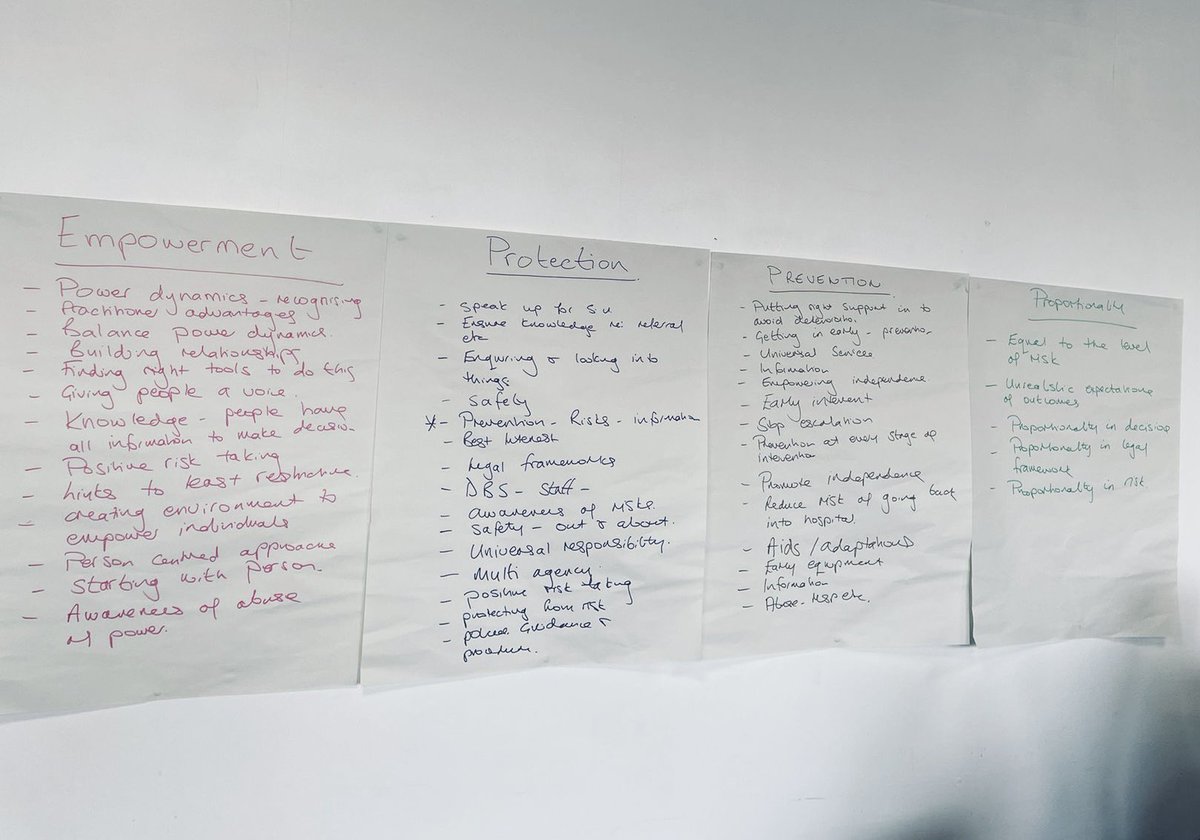 Empowerment
- Power dynamics - recognising
- Practitioner advantages
- Balance power dynamics.
- Building relationships
- Finding right tools to do this
- Giving people a voice.
- Knowledge - people have
all information to make decision
- Positive risk taking
- Links to least restrictive.
- creating environment to
empower individuals
- Person centred approache
- Starting with person
- Awareness of abuse
of power.
Protection
- Speak up for S u
- Ensure knowledge re: referral
etc
- Enquiring & looking into
things
- Safely
* - Prevention - Risks - information
- Best Interest
- Legal frameworks
- DBS - Staff -
- awareness of risks.
- Safety - out & about.
- Universal responsibility.
- Multi agency
- positive risk taking
- protecting from risk
- Guidance &
procedure.
PREVENTION
- Putting right support in to
avoid deterioration.
- Getting in early - prevention
- Universal Services
- Information
- Empowering independence.
- Early intervent
- Stop escalation
- Prevention at every stage of
intervention
- Promote independence
- Reduce risk of going back
into hospital.
- Aids / adaptations
- Early equipment
- Information
- Abuse - etc.
Proportionally
- Equal to the level
of risk
- Unrealistic expectations
of outcomes
- Proportionality in decision
- Proportionality in legal
framework
- Proportionality in risk